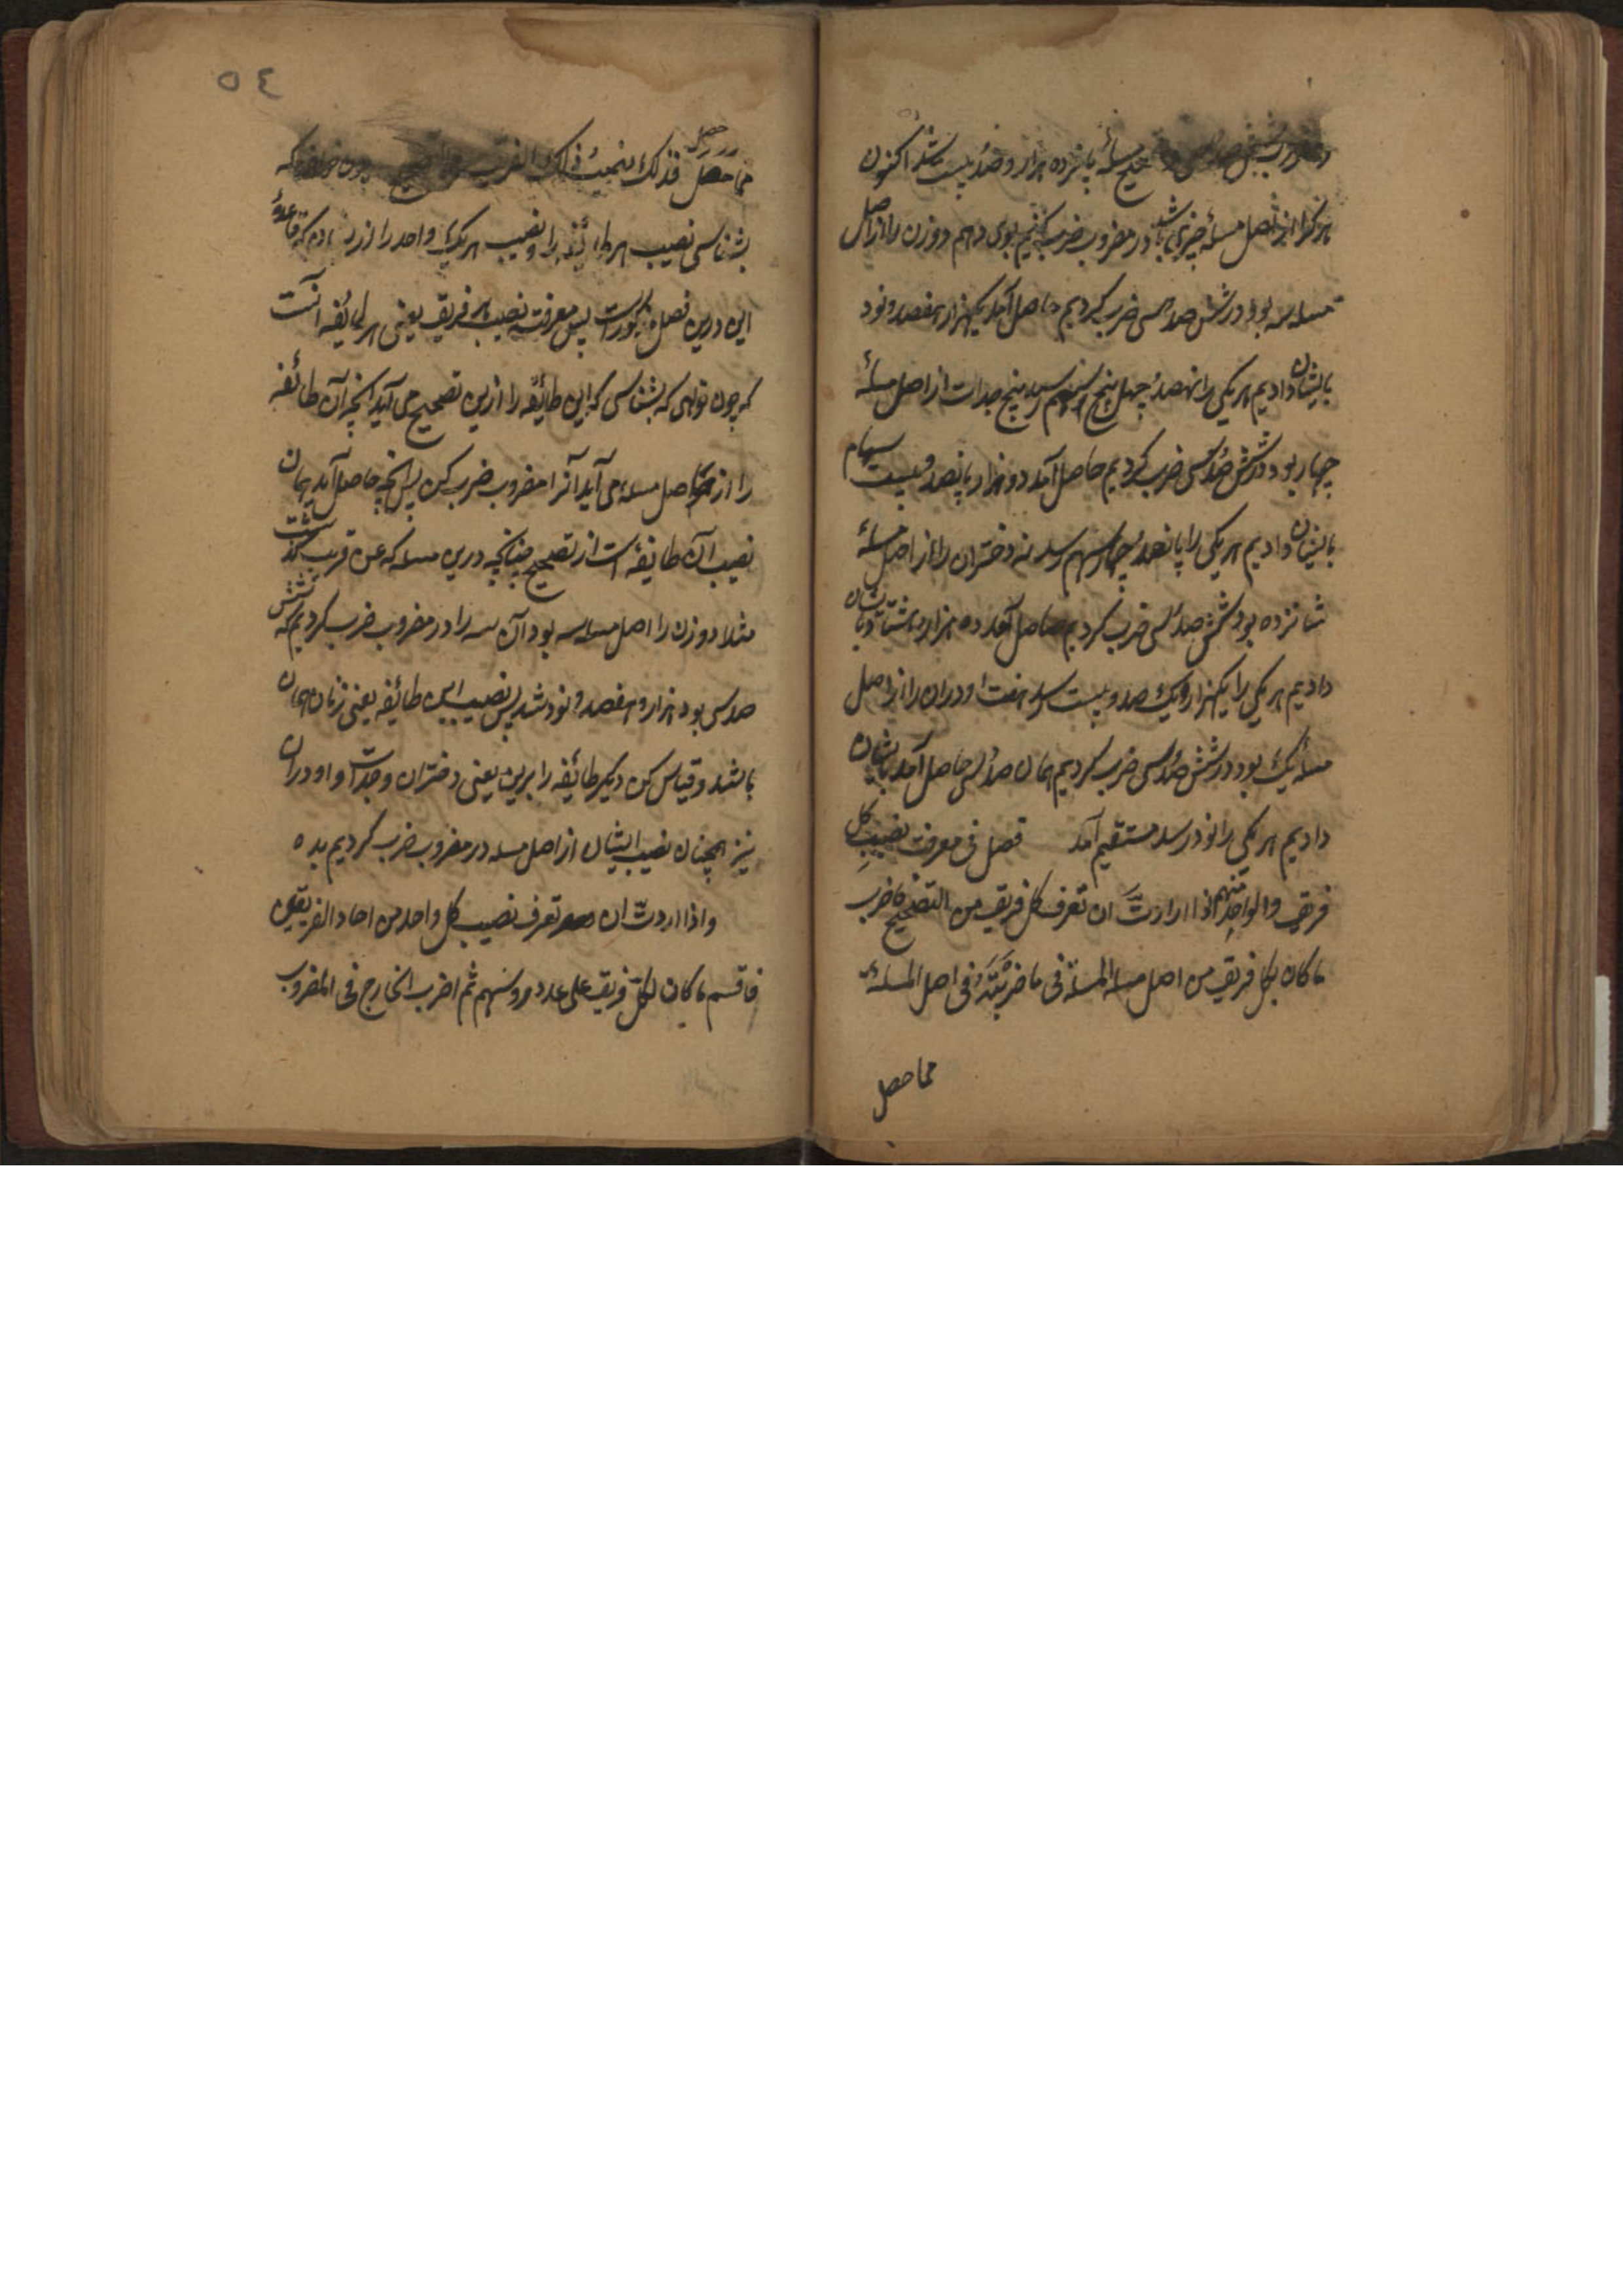 مسئله پانزده هزار و صد و بیست شد اکنون
هر کرا از اصل مسئله چیزی باشد در مضروب ضرب کنیم بوی دهیم دو زن را از اصل
مسئله سه بود در شش صد سی ضرب کردیم حاصل آمد یکهزار هشصد و نود
بایشان دادیم هر یکی را نهصد چهل پنج سهم رسید پنج جدات از اصل مسئله
چهار بود در شش صد سی ضرب کردیم حاصل آمد دو هزار پانصد و بیست سهام
بایشان دادیم هر یکی را پانصد چهار سهم رسد نه دختران را از اصل مسئله
شانزده بود شش صد سی ضرب کردیم حاصل آمد ده هزار هشتاد بایشان
دادیم هر یکی را یکهزار و یک صد و بیست رسد هفت اودران را از اصل
مسئله یک بود در شش صد سی ضرب کردیم همان صد سی حاصل آمد بایشان
دادیم هر یکی را نود رسد مستقیم آمد فصل فی معرفت نصیب کل
فریق والواحد منهم اذا ارادت ان تعرف کل فریق من التصحیح فاضرب
ما کان لکل فریق من اصل مسئله المسئلة فی ما ضربته فی اصل المسئلة
مما حصل
٥٤
حصل
مما حصل فذلک نصیب ذلک الفریق چون خواهی که
بشناسی نصیب هر طائفه را و نصیب هر یک واحد را از که قاعدهٔ
این درین فصل مذکور است پس معرفت نصیب هر فریق یعنی هر طائفه آنست
که چون خواهی که بشناسی که این طائفه را ازین تصحیح می آید آنچه آن طائفه
را از اصل مسئله می آید آنرا مضروب ضرب کن پس آنچه حاصل آید همان
نصیب آن طائفه است از تصحیح چنانچه درین مسئله که عن قریب گذشت
مثلا دو زن را اصل مسئله سه بود آن سه را در مضروب ضرب کردیم که شش
صد سی بود هزار و هشصد و نود شد پس نصیب این طائفه یعنی زنان همان
باشد و قیاس کن دیگر طائفه را برین یعنی دختران و جدات و اودران
نیز همچنان نصیب ایشان از اصل مسئله در مضروب ضرب کردیم بده
واذا اردت ان تعرف نصیب کل واحد من احاد الفریقین
فاقسم ما کان لکل فریق علی عدد روسهم ثم اضرب الخارج فی المضروب